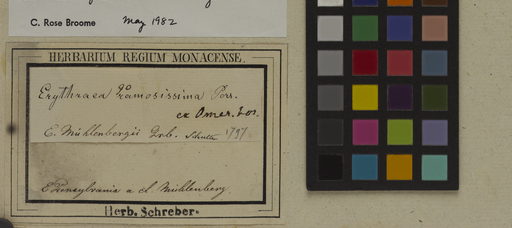 C. Rose Broome May 1982
HERBARIUM REGIUM MONACENSE.
Erythraea Ramosissima Pers.
ex Amer. bor.
E. Mühlenbergii Grb. Schultes 1797
E Pensylvania a cl Mühlenberg.
Herb. Schreber.